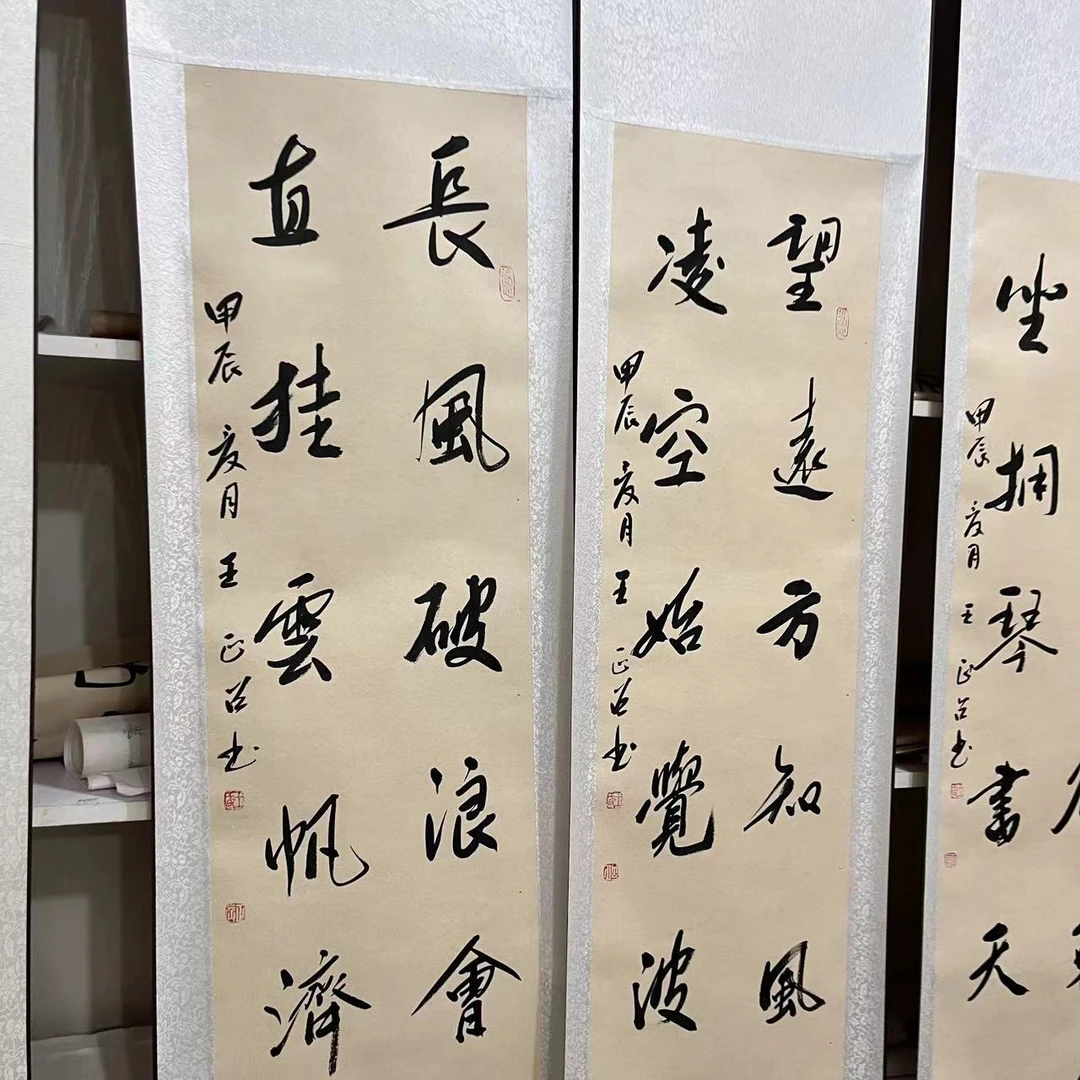 長風破浪會
直挂雲帆濟
甲辰夏月王正书
望遠方知風
凌空始覺波
甲辰夏月王正书
坐拥琴書天
甲辰夏月王正书